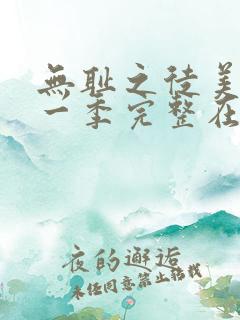 無耻之徒美
一季完整在
夜的邂逅
未经同意禁止转载